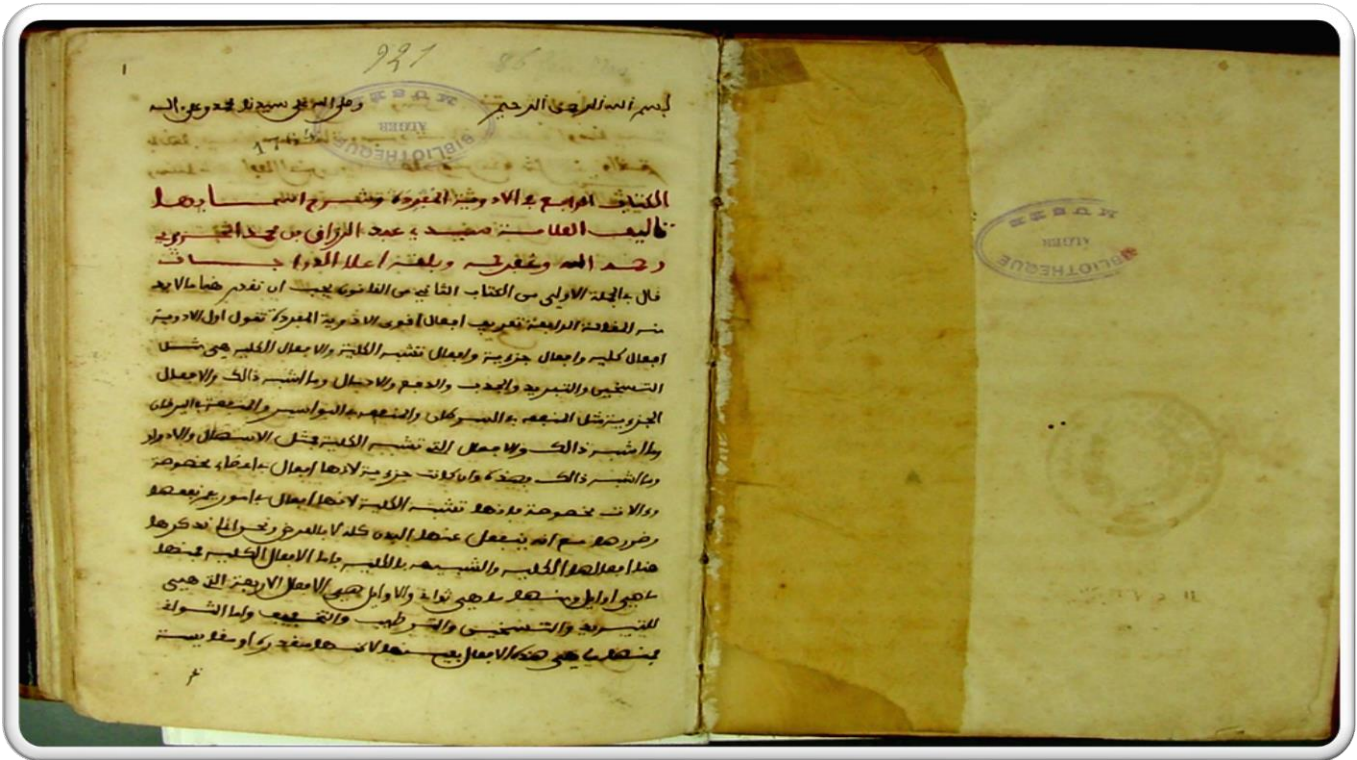 921
1
بسم الله الرحمن الرحيم وصلى الله على سيدنا محمد وعلى اله
17
BIBLIOTHEQUE
MUSEE
ALGER
الكتاب الرابع في الادوية المفردة وشرح
تاليف العلامة سيدي عبد الرزاق بن محمد
رحمه الله وغفر له وبلغه اعلا الدرا جات
قال في الجملة الاولى من الكتاب الثاني من القانون يجب ان نقدم هنا ما لابد
منه المقالة الرابعة تعريف افعال قوى الادوية المفردة نقول اول الادوية
افعال كلية وافعال جزءية وافعال تشبه الكلية والافعال الكلية هي مثل
التسخين والتبريد والجذب والدفع والادمال وما اشبه ذالك والافعال
الجزءية مثل المنفعة في السرطان والمنفعة في البواسير والمنفعة في اليرقان
وما اشبه ذالك والافعال التي تشبه الكلية مثل الاسهال والادرار
وما اشبه ذالك فهذه وان كانت جزءية لانها افعال في اعضاء مخصوصة
وءالات مخصوصة فانها تشبه الكلية لانها افعال في امور يعم نفعها
وضررها مع انه ينفعل عنها البدن كله لا بالعرض ونحن انما نذكر
هنا افعالها الكلية والشبيهة بالكلية فاما الافعال الكلية فمنها
ما هي اوايل ومنها ما هي ثوان والاوايل هي الافعال الاربعة التي هي
التبريد والتسخين والترطيب والتجفيف واما الثواني
فمنها ما هي هذه الافعال بعينها لاكنها مقدرة او مقايسة
BIBLIOTHEQUE
MUSEE
ALGER